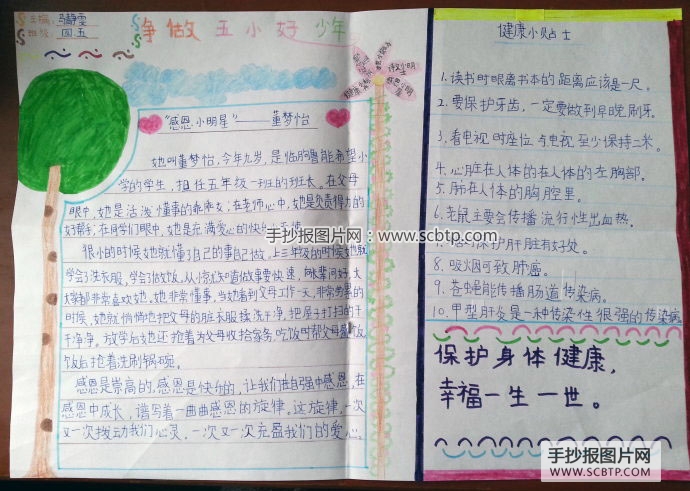 主编：马静雯
班级：四、五
争做五小好少年
"感恩小明星"——董梦怡
她叫董梦怡，今年九岁，是临朐县能希望小
学的学生，担任五年级一班的班长。在父母
眼中，她是活泼懂事的乖乖女；在老师心中，她是负责得力的
好帮手；在同学们眼中，她是充满爱心的快乐天使。
很小的时候她就懂了自己的事自己做，上三年级的时候她就
学会了洗衣服，学会了做饭，从
大家都非常喜欢她，她非常懂事，当她看到父母工作一天，非常劳累的
时候，她就悄悄地把父母的脏衣服揉洗干净，把屋子打扫的干
干净净，放学后她还抢着为父母收拾家务，吃饭时帮父母盛饭，
饭后抢着洗刷锅碗。
感恩是崇高的，感恩是快乐的，让我们自强中感恩，在
感恩中成长，谱写着一曲曲感恩的旋律。这旋律，一次
又一次拨动我们心灵，一次又一次充盈我们的爱心。
健康小贴士
1.读书时眼离书本的距离应该是一尺。
2.要保护牙齿，一定要做到早晚刷牙。
3.看电视时座位与电视至少保持二米。
4.心脏在人体的在人体的左胸部。
5.肺在人体的胸腔里。
6.老鼠主要会传播流行性出血热。
保护肝脏有好处。
8.吸烟可致肺癌。
9.苍蝇能传播肠道传染病。
10.甲型肝炎是一种传染性很强的传染病
保护身体健康，
幸福一生一世。
手抄报图片网：www.scbtp.com
手抄报图片网
WWW.SCBTP.COM